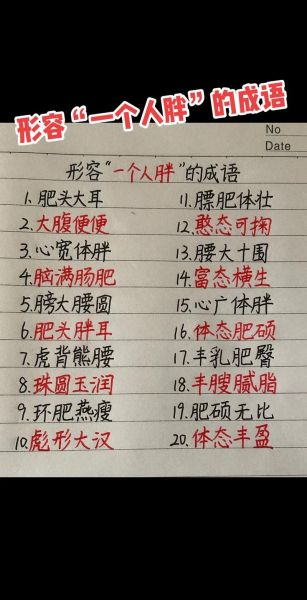 形容“一个人胖”的成语
No
Date
形容“一个人胖”的成语
1. 肥头大耳
2. 大腹便便
3. 心宽体胖
4. 脑满肠肥
5. 膀大腰圆
6. 肥头胖耳
7. 虎背熊腰
8. 珠圆玉润
9. 环肥燕瘦
10. 彪形大汉
11. 膘肥体壮
12. 憨态可掬
13. 腰大十围
14. 富态横生
15. 心广体胖
16. 体态肥硕
17. 丰乳肥臀
18. 丰膄腻脂
19. 肥硕无比
20. 体态丰盈